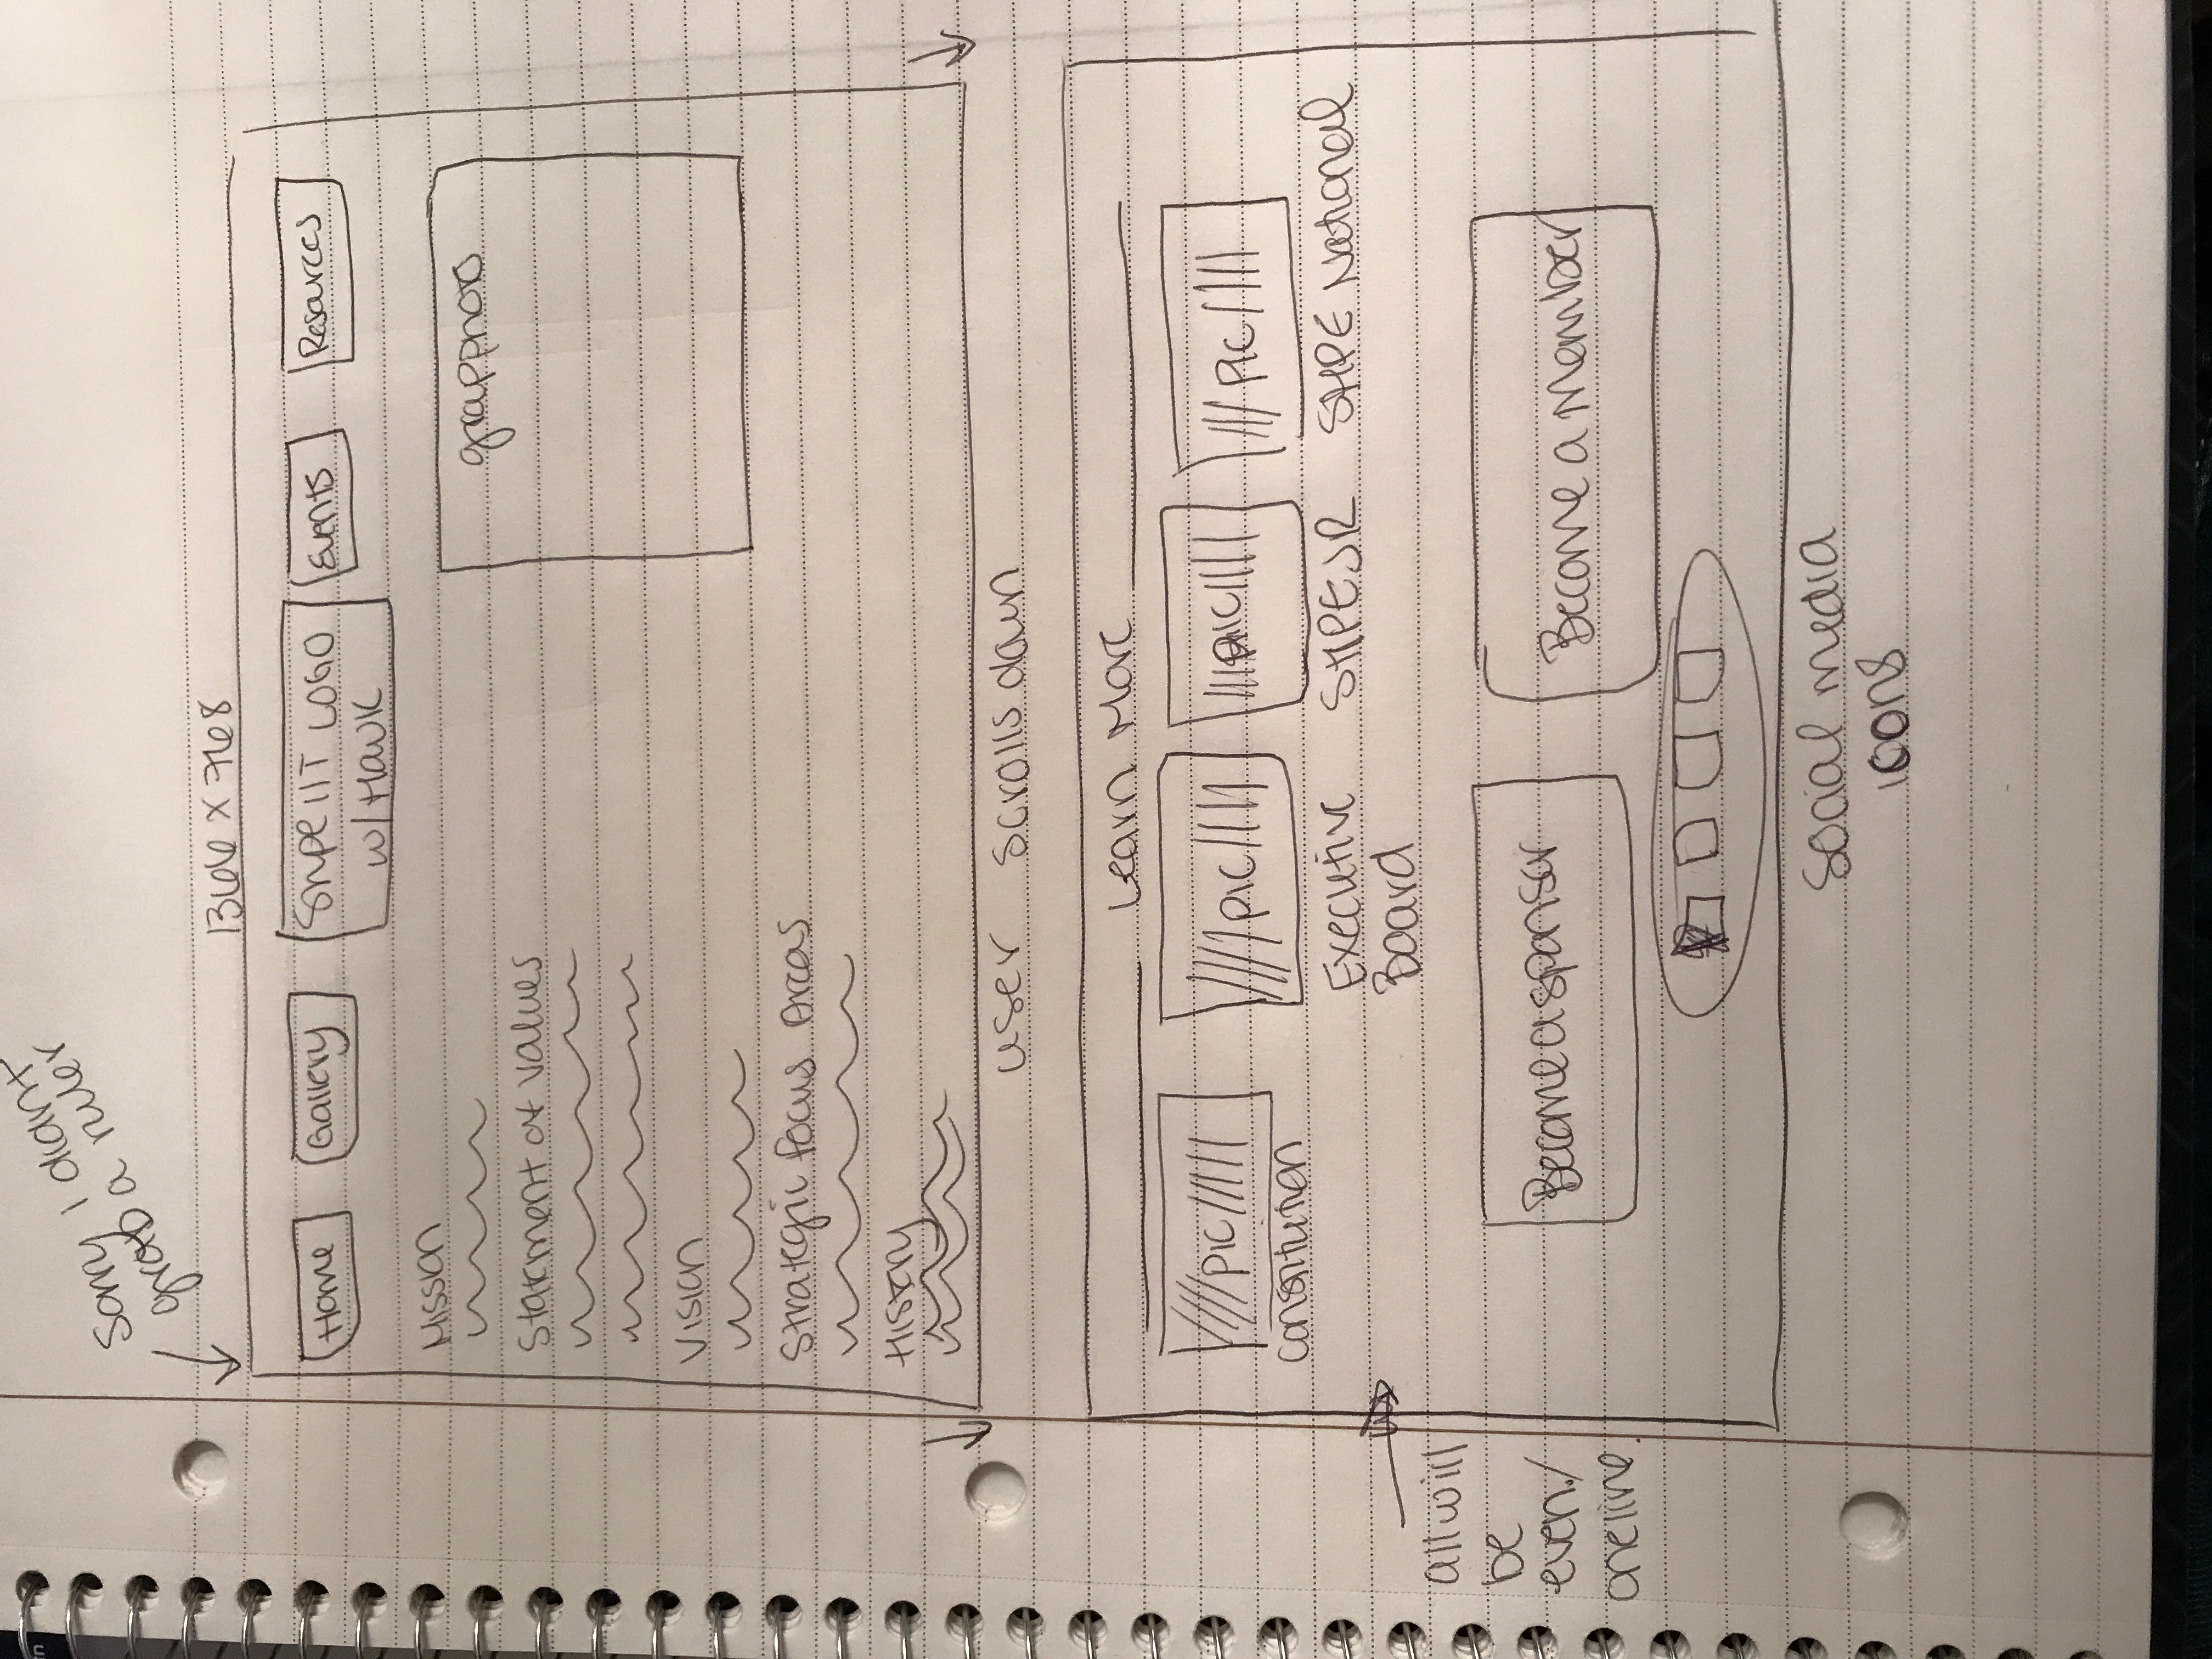 Sorry I didnt
grab a ruler
1366 x 768
Home
Gallery
Shpe IIT LOGO
w/ HAWK
Events
Resources
Mission
Statment of values
Vision
Strategic focus Areas
History
user scrolls down
Learn More
pic
pic
pic
pic
Constitution
Executive
Board
SHPE JR
SHPE National
all will
be
even/
one line.
Become a sponser
Become a Member
Social media
icons